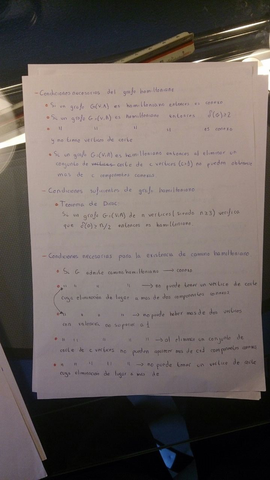 - Condiciones necesarias del grafo hamiltoniano
• Si un grafo G=(V,A) es hamiltoniano entonces es conexo
• Si un grafo G=(V,A) es hamiltoniano entonces δ(G)≥2
• " " " " " es conexo
y no tiene vértices de corte
• Si un grafo G=(V,A) es hamiltoniano entonces al eliminar un
conjunto de vértices corte de k vértices no pueden
más de k componentes conexas
- Condiciones suficientes de grafo hamiltoniano
• Teorema de Dirac:
Si un grafo G=(V,A) de n vértices (siendo n≥3) verifica
que δ(G)≥n/2 entonces es hamiltoniano
- Condiciones necesarias para la existencia de camino hamiltoniano
• Si G admite camino hamiltoniano → conexo
• " " " " → no puede tener un vértice de corte
cuya eliminación de lugar a más de dos componentes conexas
• " " " " → no puede haber más de dos vértices
• " " " " → al eliminar un conjunto de
corte de k vértices no pueden aparecer más de k+1 componentes conexas
• " " " " → no puede tener un vértice de corte
cuya eliminación de lugar a más de